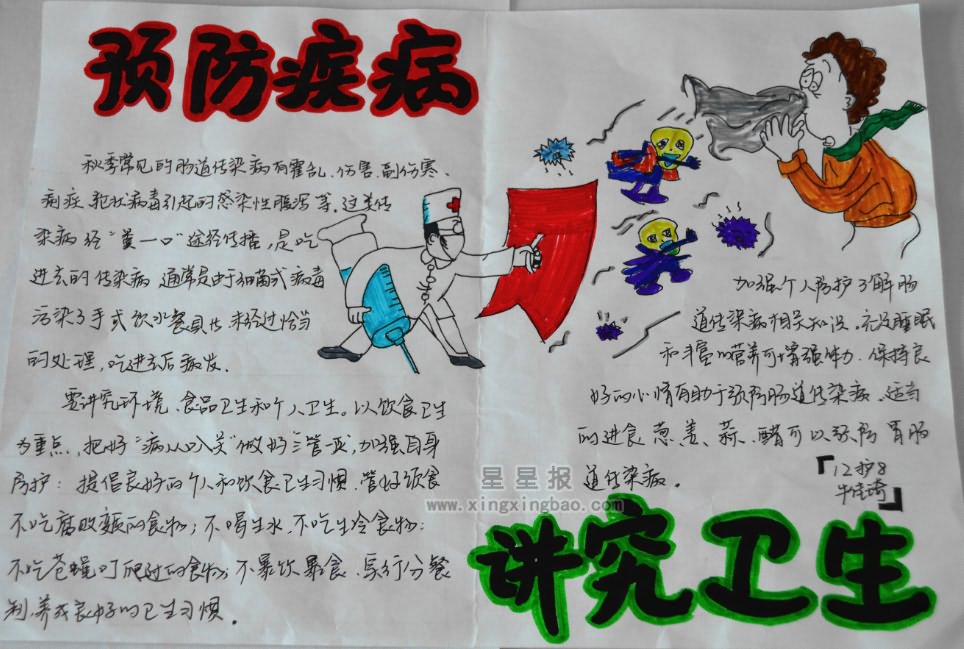 预防疾病
秋季常见的肠道传染病有霍乱、伤寒、副伤寒、
痢疾、轮状病毒引起的感染性腹泻等。这类传
染病经“粪一口”途径传播，是吃
进去的传染病，通常是由于细菌或病毒
污染了手或饮水餐具传未经过恰当
的处理，吃进去后病发。
要讲究环境、食品卫生和个人卫生。以饮食卫生
为重点，把好“病从口入关”做好三管一灭，加强自身
防护：提倡良好的个人和饮食卫生习惯，管好饮食
不吃腐败变质的食物；不喝生水，不吃生冷食物；
不吃苍蝇叮爬过的食物；不暴饮暴食，实行分餐
制，养成良好的卫生习惯。
加强个人防护了解肠
道传染病相关知识。充足睡眠
和丰富的营养可增强体力，保持良
好的心情有助于预防肠道传染病。适当
的进食葱、姜、蒜、醋可以预防胃肠
道传染病。
「12护8
牛佳琦」
星星报
www.xingxingbao.com
讲究卫生